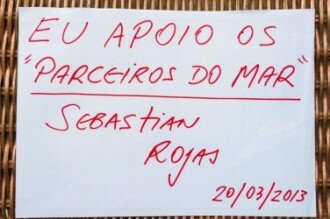 EU APOIO OS
"PARCEIROS DO MAR"
SEBASTIAN
ROJAS
20/03/2013